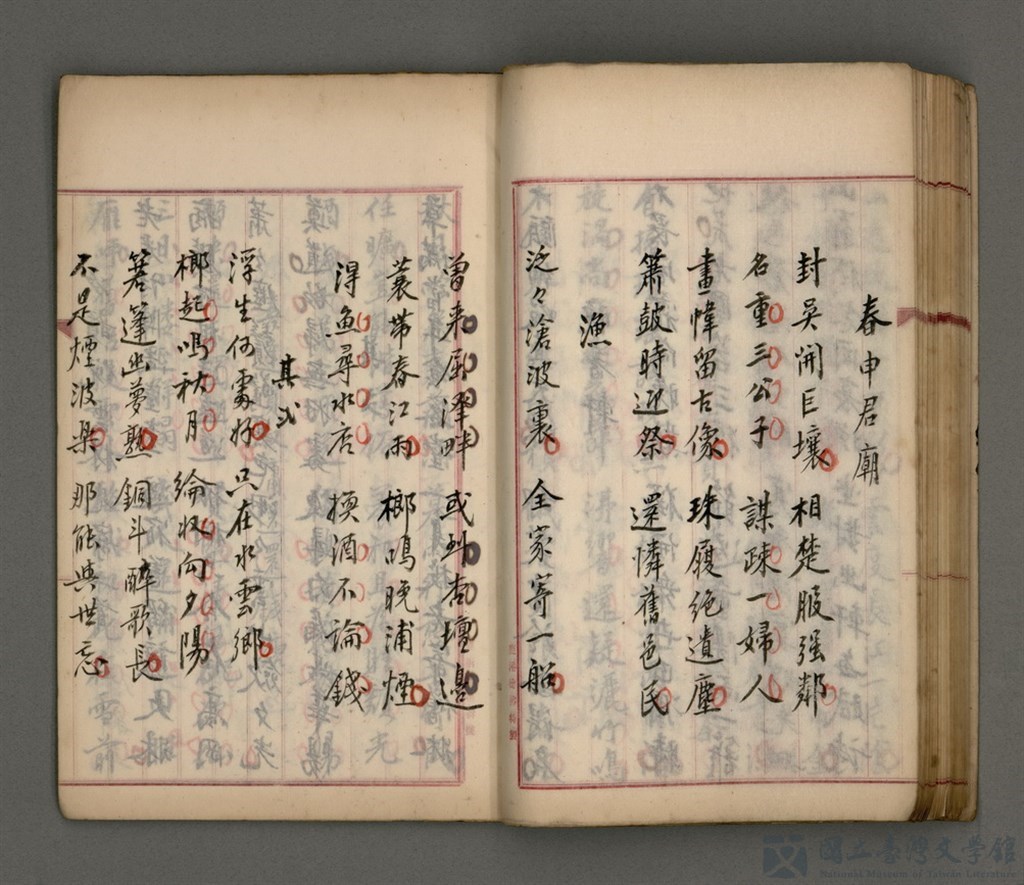 春申君廟
封吳開巨壤 相楚服强鄰
名重三公子 謀疎一婦人
畫幃留古像 珠履絶遺塵
簫鼓時迎祭 還憐舊邑民
漁
泛々滄波裏 全家寄一船
曾来屈澤畔 或到杏壇邊
蓑帶春江雨 榔鳴晚浦煙
得魚尋水店 換酒不論錢
其弍
浮生何處好 只在水雲鄉
榔起鳴秋月 綸收向夕陽
篛篷幽夢熟 銅斗醉歌長
不是煙波樂 那能與世忘
國立臺灣文學館
National Museum of Taiwan Literature